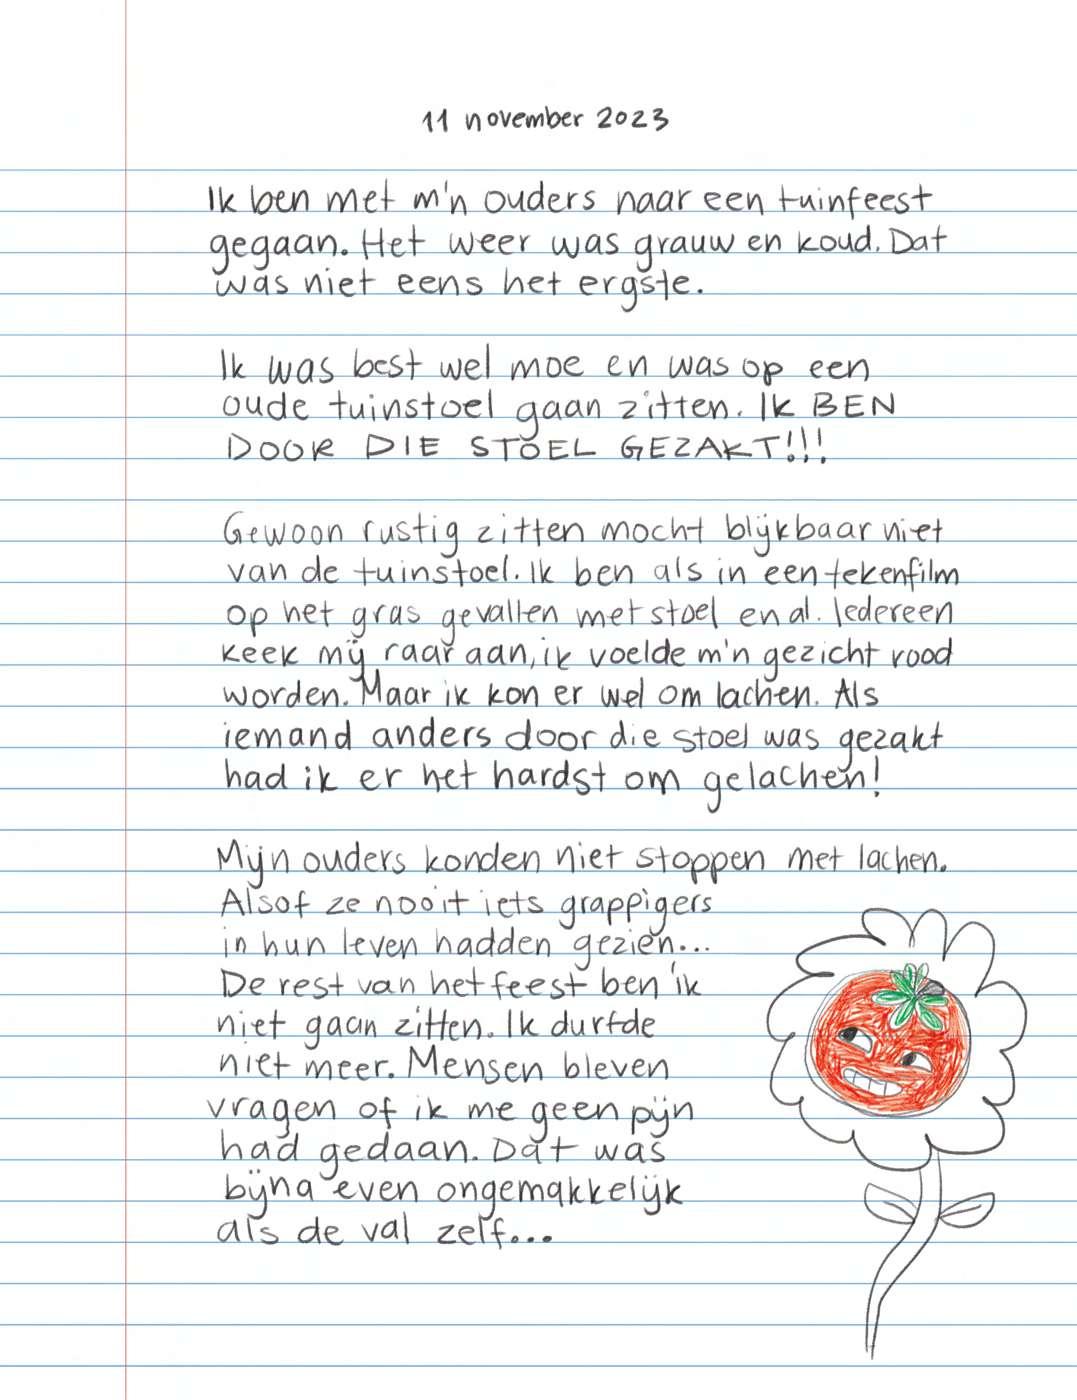 11 november 2023
Ik ben met m'n ouders naar een tuinfeest
gegaan. Het weer was grauw en koud. Dat
was niet eens het ergste.
Ik was best wel moe en was op een
oude tuinstoel gaan zitten. IK BEN
DOOR DIE STOEL GEZAKT!!!
Gewoon rustig zitten mocht blijkbaar niet
van de tuinstoel. Ik ben als in een tekenfilm
op het gras gevallen met stoel en al. Iedereen
keek mij raar aan, ik voelde m'n gezicht rood
worden. Maar ik kon er wel om lachen. Als
iemand anders door die stoel was gezakt
had ik er het hardst om gelachen!
Mijn ouders konden niet stoppen met lachen.
Alsof ze nooit iets grappigers
in hun leven hadden gezien...
De rest van het feest ben ik
niet gaan zitten. Ik durfde
niet meer. Mensen bleven
vragen of ik me geen pijn
had gedaan. Dat was
bijna even ongemakkelijk
als de val zelf...